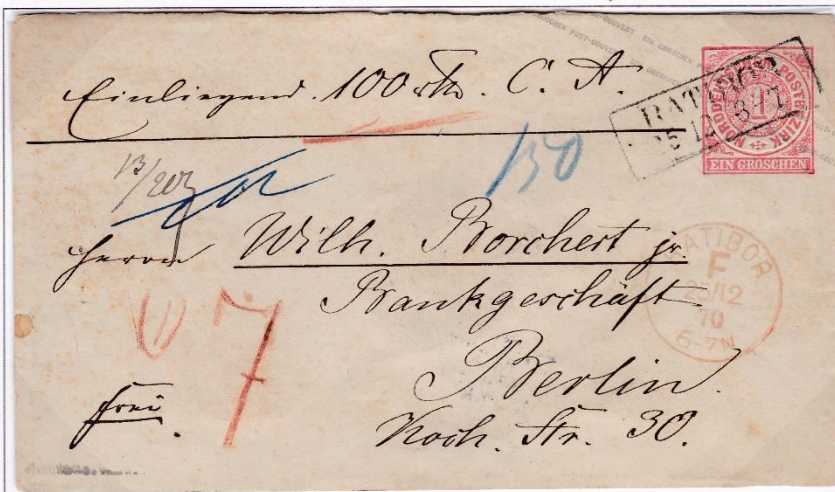 Einliegend 100 rth. C. A.
NORDDEUTSCHER POSTBEZIRK
1
EIN GROSCHEN
RATIBOR
25 12 3|7
150
Herrn Wilh. Borchert jr.
Bankgeschäft
Berlin
Koch. Str. 30.
frei
7
RATIBOR
F
25/12
70
6-7N